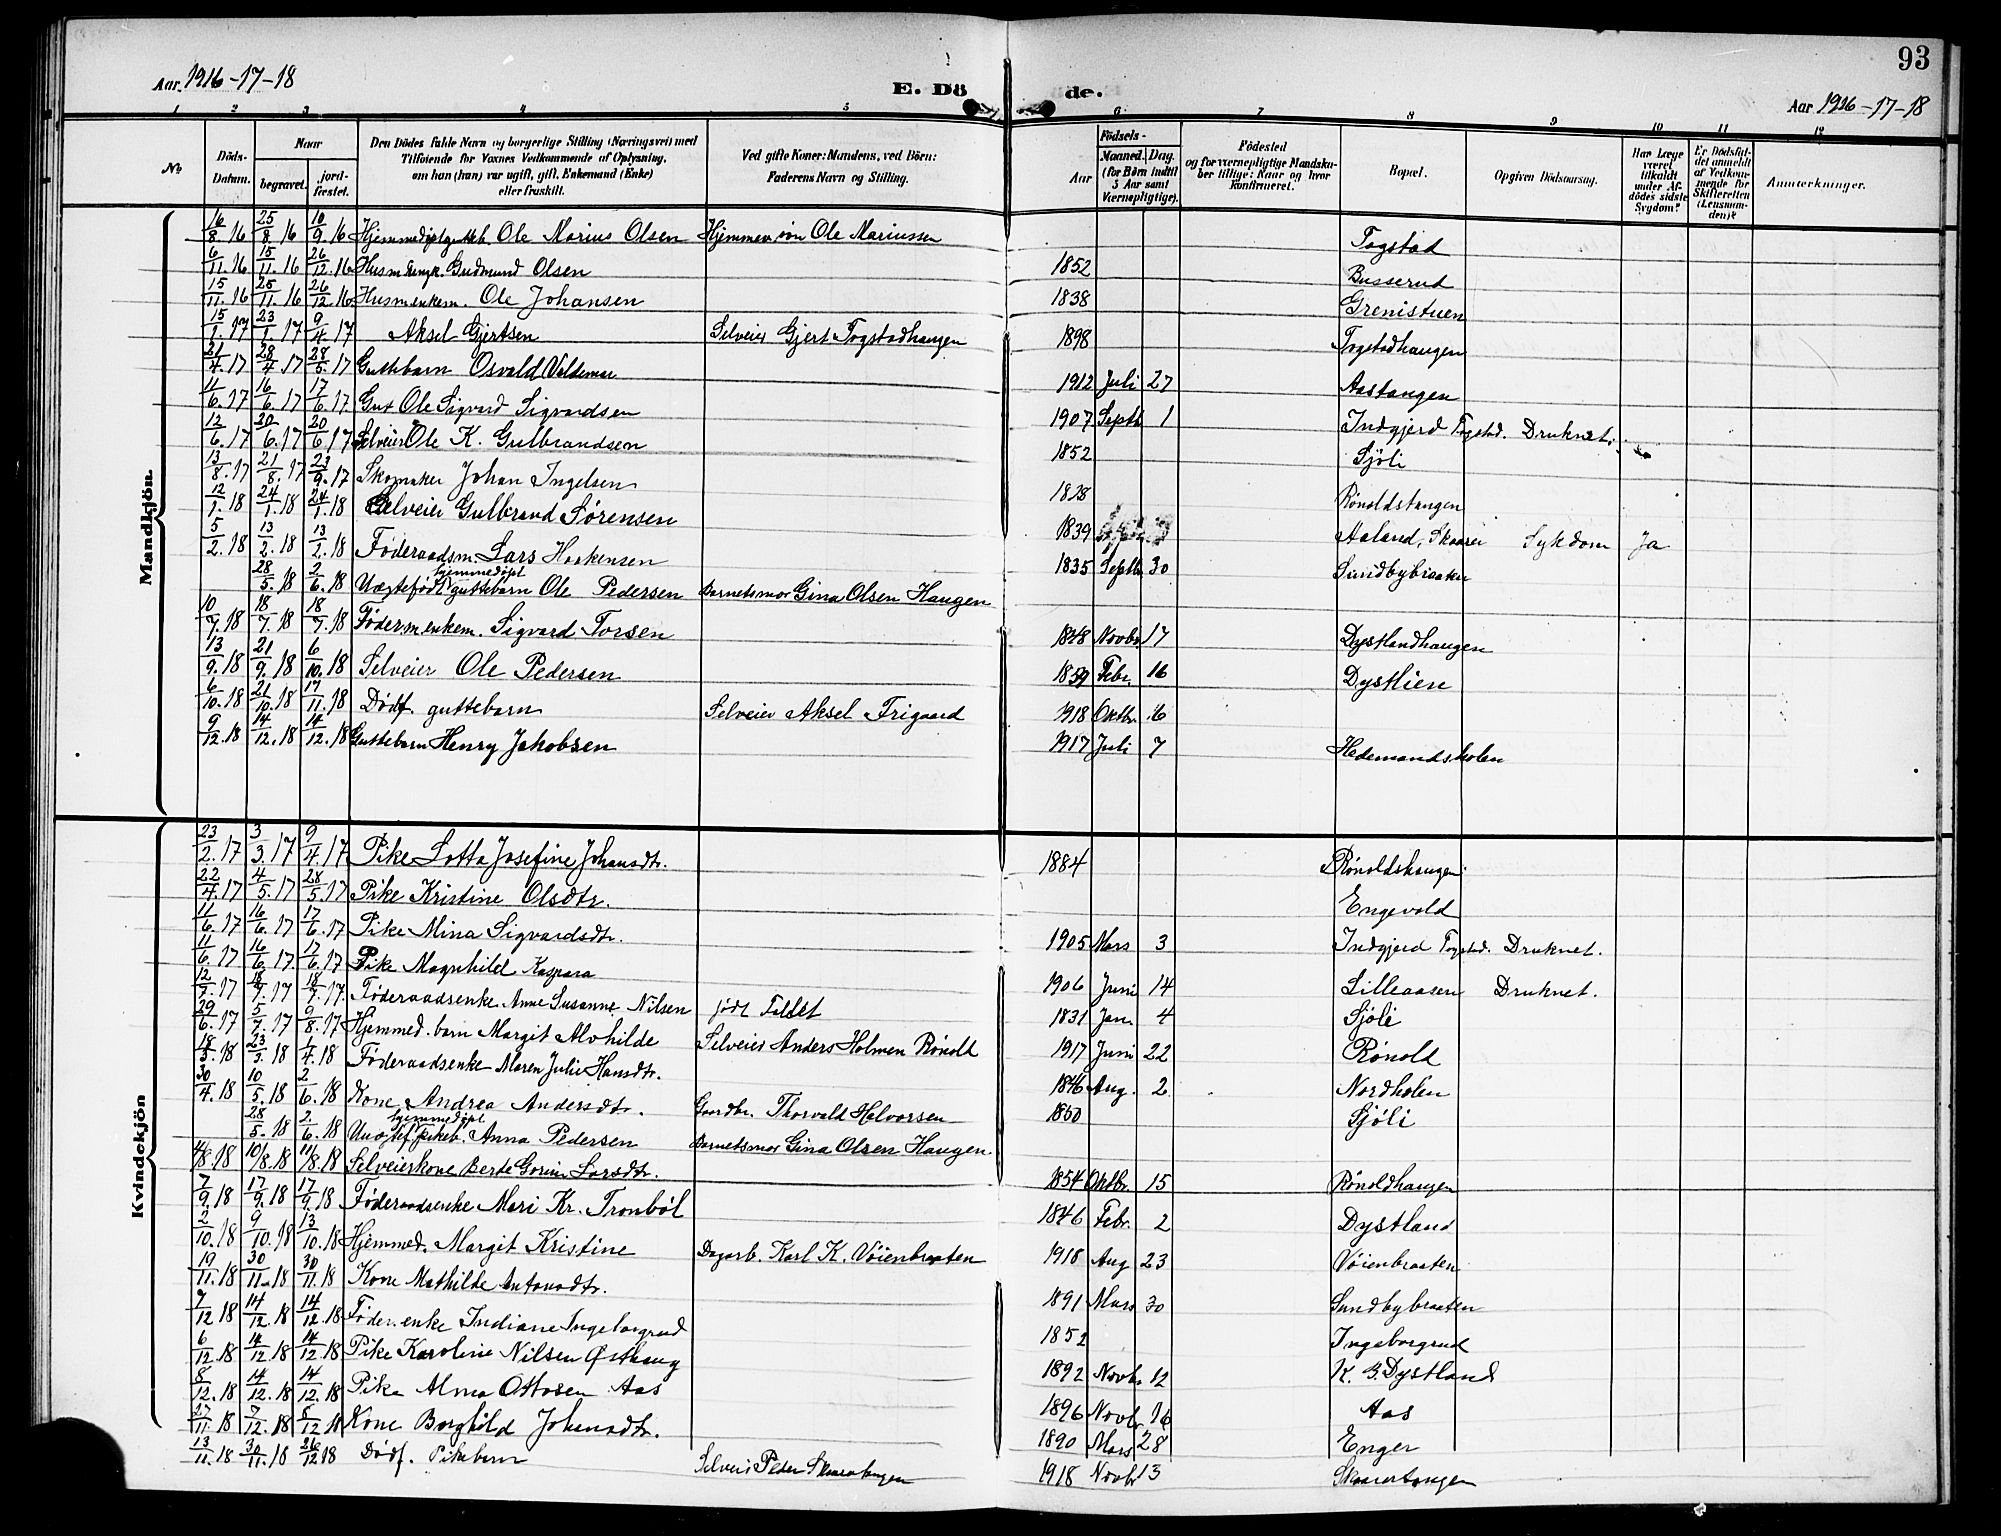 93
Aar 1916-17-18 E. Döde. Aar 1916-17-18
1 2 3 4 5 6 7 8 9 10 11 12
No
Döds-Datum.
Naar
begravet.
jord-fæstet.
Den Dödes fulde Navn og borgerlige Stilling (Næringsvei) med
Tilföiende for Voxnes Vedkommende af Oplysning,
om han (hun) var ugift, gift, Enkemand (Enke)
eller fraskilt.
Ved gifte Koner: Mandens, ved Börn:
Faderens Navn og Stilling.
Födsels-
Aar
Maaned. Dag.
(for Börn indtil
5 Aar samt
Værnepligtige).
Födested
og for værnepligtige Mandska-
ber tillige: Naar og hvor
konfirmeret.
Bopæl.
Opgiven Dödsaarsag.
Har Læge
været
tilkaldt
under Af-
dödes sidste
Sygdom?
Er Dödsfal-
det anmeldt
af Vedkom-
mende for
Skifteretten
(Lensman-
den)?
Anmærkninger.
Mandkjön.
16/8 16 25/8 16 10/9 16 Ole Marius Olsen Ole Mariussen Togstad
6/11 16 15/11 16 26/12 16 Gudmund Olsen 1852 Busserud
15/11 16 25/11 16 26/12 16 Husm.enkem. Ole Johansen 1838 Grenistuen
15/1 17 23/1 17 9/4 17 Aksel Gjertsen Selveier Gjert Togstadhaugen 1898 Togstadhaugen
21/4 17 28/4 17 28/5 17 Guttebarn Osvald Valdemar 1912 Juli 27 Aastangen
11/6 17 16/6 17 17/6 17 Gut Ole Sigvard Sigvardsen 1907 Septb 1 Indgjerd Togstad. Druknet.
12/6 17 20/6 17 20/6 17 Selveier Ole K. Gulbrandsen 1852 Sjöli
13/8 17 21/8 17 23/9 17 Skomaker Johan Ingelsen 1828 Rönoldstangen
12/1 18 24/1 18 24/1 18 Selveier Gulbrand Sörensen 1839 Aaland, Skaarer Sykdom Ja
5/2 18 13/2 18 13/2 18 Föderaadsm. Lars Haakensen 1835 Septb 30 Sundbybraaten
28/5 18 2/6 18 Uægtefödt hjemmedöpt guttebarn Ole Pedersen Barnetsmor Gina Olsen Haugen
10/7 18 18/7 18 18/7 18 Föderm.enkem. Sigvard Torsen 1848 Novbr 17 Dystlandhaugen
13/9 18 21/9 18 6/10 18 Selveier Ole Pedersen 1859 Febr. 16 Dystlien
6/10 18 21/10 18 17/11 18 Dödf. guttebarn Selveier Aksel Frigaard 1918 Oktbr. 6
9/12 18 14/12 18 14/12 18 Guttebarn Henry Jakobsen 1917 Juli 7 Hedemandskolen
Kvindekjön
23/2 17 3/3 17 9/4 17 Pike Lotta Josefine Johansdtr. 1884 Rönoldshaugen
22/4 17 4/5 17 28/5 17 Pike Kristine Olsdtr. Engevold
11/6 17 16/6 17 17/6 17 Pike Mina Sigvardsdtr. 1905 Mars 3 Indgjerd Togstad. Druknet.
11/6 17 16/6 17 17/6 17 Pike Magnhild Kaspara 1906 Juni 14 Lilleaasen Druknet.
12/7 17 18/7 17 18/7 17 Föderaadsenke Anne Susanne Nilsen födt Faldet 1831 Jan. 4 Sjöli
29/6 17 5/7 17 9/8 17 Hjemmed. barn Margit Alvhilde Selveier Anders Holmen Rönold 1917 Juni 22 Rönold
18/3 18 23/5 18 1/4 18 Föderaadsenke Maren Julie Hansdtr. 1846 Aug. 2 Nordholen
30/4 18 10/5 18 2/6 18 Kone Andrea Andersdtr. Gaardbr. Thorvald Halvorsen 1850 Sjöli
28/5 18 2/6 18 Uægtef. hjemmedöpt pikeb. Anna Pedersen Barnetsmor Gina Olsen Haugen
4/8 18 10/8 18 11/8 18 Selveierkone Berte Gorine Larsdtr. 1854 Oktbr. 15 Rönoldhaugen
7/9 18 17/9 18 17/9 18 Föderaadsenke Mari Kr. Tronböl 1846 Febr. 2 Dystland
2/10 18 9/10 18 13/10 18 Hjemmed. Margit Kristine Dagarb. Karl K. Vöienbraaten 1918 Aug 23 Vöienbraaten
19/11 18 30/11 18 30/11 18 Kone Mathilde Antonsdtr. 1891 Mars 30 Sundbybraaten
7/12 18 14/12 18 14/12 18 Föder.enke Indiane Ingeborgrud 1852 Ingeborgrud
6/12 18 14/12 18 14/12 18 Pike Karoline Nilsen Østhaug 1892 Novb. 12 K. B. Dystland
8/12 18 14/12 18 14/12 18 Pike Alma Ottosen Aas 1896 Novb. 16 Aas
27/11 18 7/12 18 8/12 18 Kone Borghild Johansdtr. 1890 Mars 28 Enger
13/11 18 30/11 18 26/12 18 Dödf. Pikebarn Selveier Peder Skaaretangen 1918 Novb 13 Skaarertangen